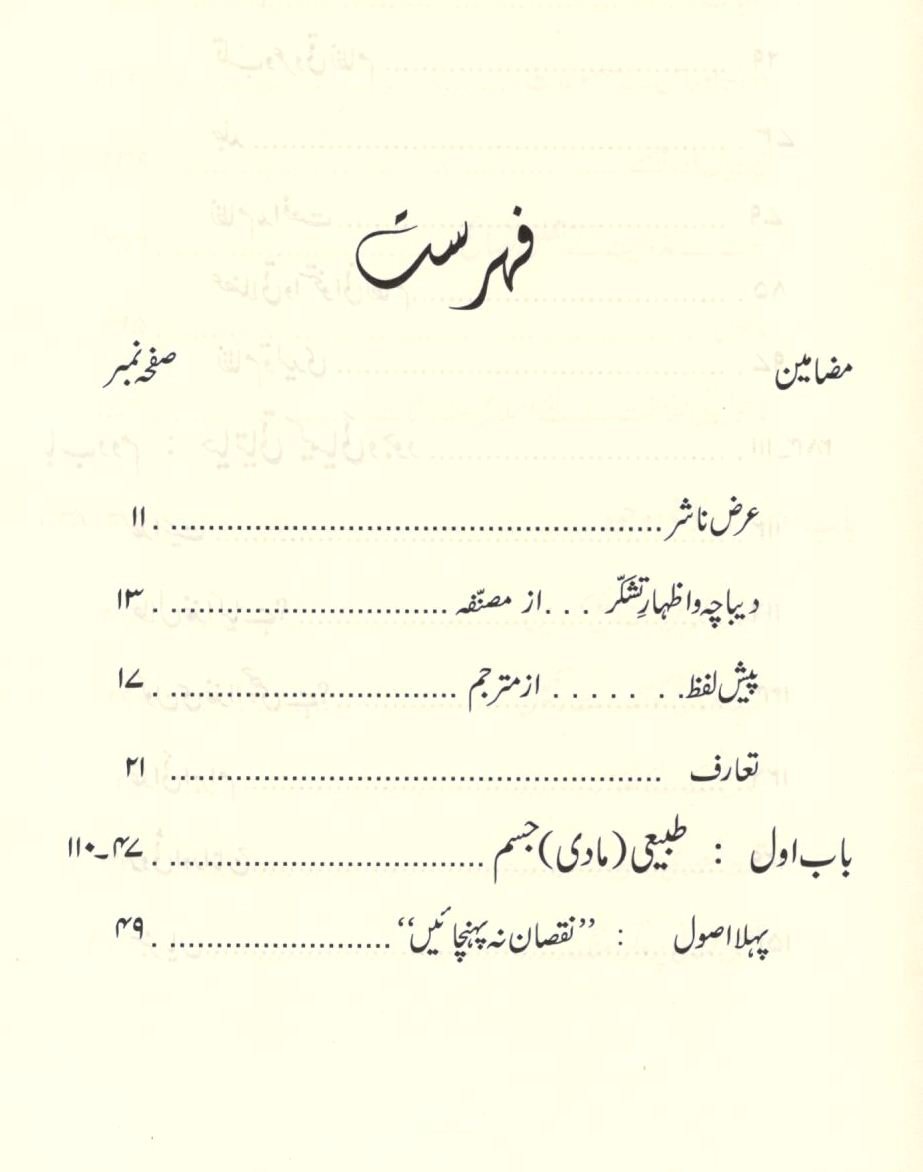 فہرست
مضامین صفحہ نمبر
عرض ناشر ........................................................ ۱۱
دیباچہ و اظہارِ تشکّر . . . از مصنّفہ ................................ ۱۳
پیش لفظ . . . . . . از مترجم ................................ ۱۷
تعارف ........................................................ ۲۱
باب اول : طبیعی (مادی) جسم .................................... ۴۷۔۱۱۰
پہلا اصول : ”نقصان نہ پہنچائیں“ ........................ ۴۹